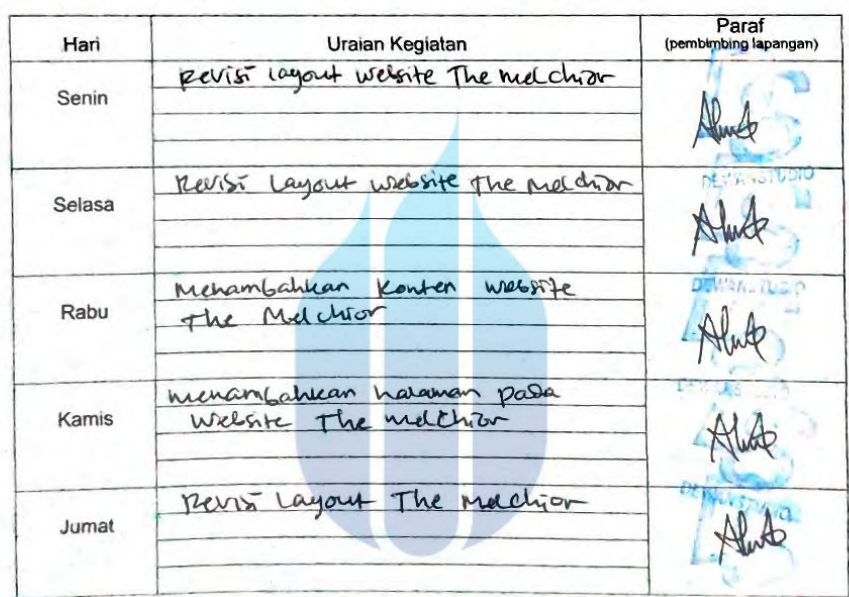 Hari Uraian Kegiatan Paraf
(pembimbing lapangan)
Senin Revisi layout website The melchior
DEWANSTUDIO
Selasa Revisi Layout website The melchior
DEWANSTUDIO
Rabu Menambahkan Konten website
The Melchior
DEWANSTUDIO
Kamis Menambahkan halaman pada
website The melchior
DEWANSTUDIO
Jumat Revisi Layout The melchior